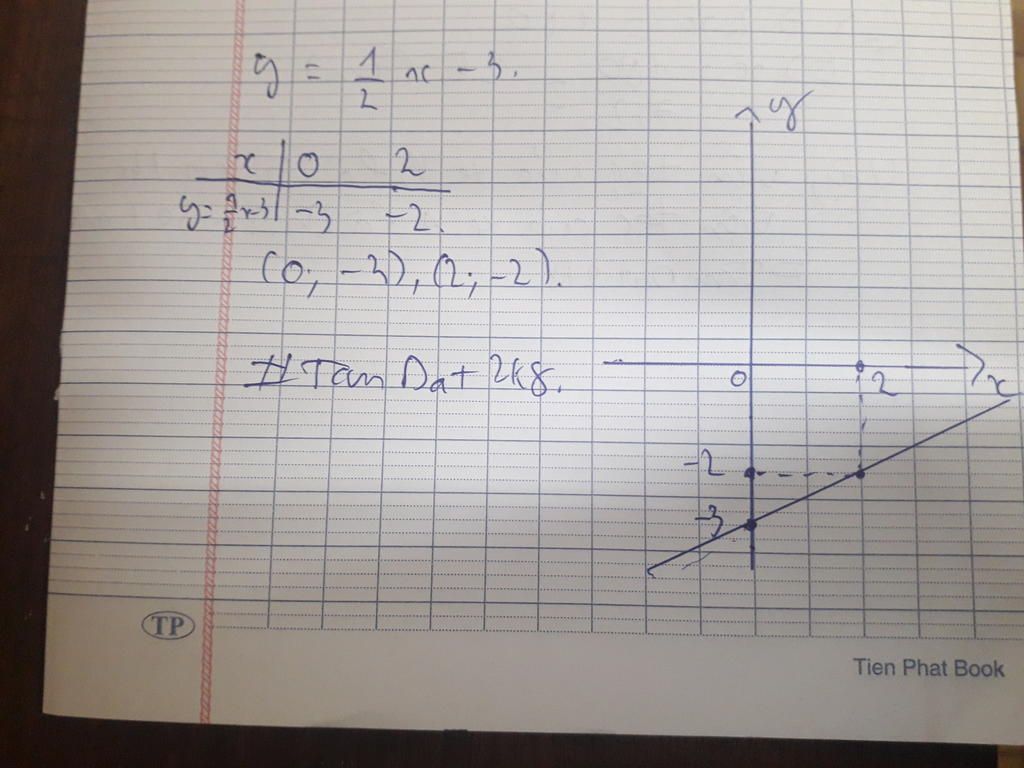 y = 1/2 x - 3.
x | 0 2
y = 1/2 x - 3 | -3 -2.
(0; -3), (2; -2).
# Tan Dat 2k8.
y
0 2 x
-2
-3
TP
Tien Phat Book